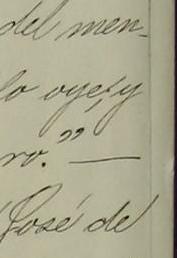 del men-
lo oye, y
ro." —
José de